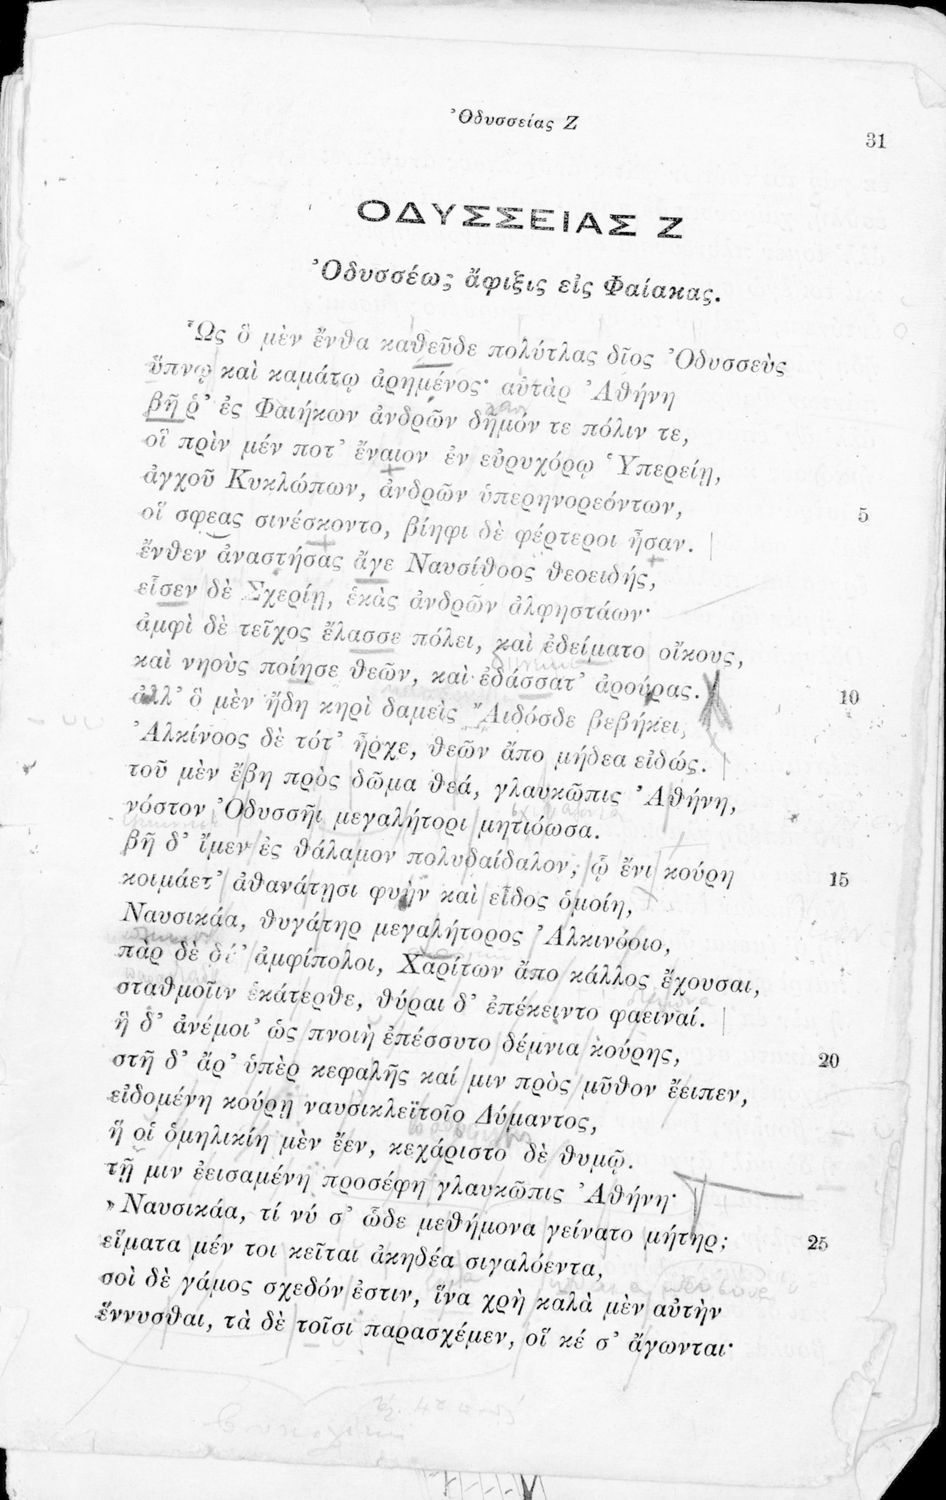 Ὀδυσσείας Ζ
31
ΟΔΥΣΣΕΙΑΣ Ζ
Ὀδυσσέως ἄφιξις εἰς Φαίακας.
Ὣς ὃ μὲν ἔνθα καθεῦδε πολύτλας δῖος Ὀδυσσεὺς
ὕπνῳ καὶ καμάτῳ ἀρημένος· αὐτὰρ Ἀθήνη
βῆ ῥ’ ἐς Φαιήκων ἀνδρῶν δῆμόν τε πόλιν τε,
οἳ πρὶν μέν ποτ’ ἔναιον ἐν εὐρυχόρῳ Ὑπερείῃ,
ἀγχοῦ Κυκλώπων, ἀνδρῶν ὑπερηνορεόντων,
5
οἵ σφεας σινέσκοντο, βίηφι δὲ φέρτεροι ἦσαν.
ἔνθεν ἀναστήσας ἄγε Ναυσίθοος θεοειδής,
εἷσεν δὲ Σχερίῃ, ἑκὰς ἀνδρῶν ἀλφηστάων·
ἀμφὶ δὲ τεῖχος ἔλασσε πόλει, καὶ ἐδείματο οἴκους,
καὶ νηοὺς ποίησε θεῶν, καὶ ἐδάσσατ’ ἀρούρας.
10
ἀλλ’ ὃ μὲν ἤδη κηρὶ δαμεὶς Ἄιδόσδε βεβήκει,
Ἀλκίνοος δὲ τότ’ ἦρχε, θεῶν ἄπο μήδεα εἰδώς.
τοῦ μὲν ἔβη πρὸς δῶμα θεά, γλαυκῶπις Ἀθήνη,
νόστον Ὀδυσσῆι μεγαλήτορι μητιόωσα.
βῆ δ’ ἴμεν ἐς θάλαμον πολυδαίδαλον, ᾧ ἔνι κούρη
15
κοιμᾶετ’ ἀθανάτῃσι φυὴν καὶ εἶδος ὁμοίη,
Ναυσικάα, θυγάτηρ μεγαλήτορος Ἀλκινόοιο,
πὰρ δὲ δύ’ ἀμφίπολοι, Χαρίτων ἄπο κάλλος ἔχουσαι,
σταθμοῖιν ἑκάτερθε, θύραι δ’ ἐπέκειντο φαειναί.
ἣ δ’ ἀνέμοι’ ὡς πνοιὴ ἐπέσσυτο δέμνια κούρης,
20
στῆ δ’ ἄρ’ ὑπὲρ κεφαλῆς καί μιν πρὸς μῦθον ἔειπεν,
εἰδομένη κούρῃ ναυσικλεϊτοῖο Δύμαντος,
ἥ οἱ ὁμηλικίη μὲν ἔεν, κεχάριστο δὲ θυμῷ.
τῇ μιν ἐεισαμένη προσέφη γλαυκῶπις Ἀθήνη·
»Ναυσικάα, τί νύ σ’ ὧδε μεθήμονα γείνατο μήτηρ;
25
εἵματα μέν τοι κεῖται ἀκηδέα σιγαλόεντα,
σοὶ δὲ γάμος σχεδόν ἐστιν, ἵνα χρὴ καλὰ μὲν αὐτὴν
ἕννυσθαι, τὰ δὲ τοῖσι παρασχέμεν, οἵ κέ σ’ ἄγωνται·